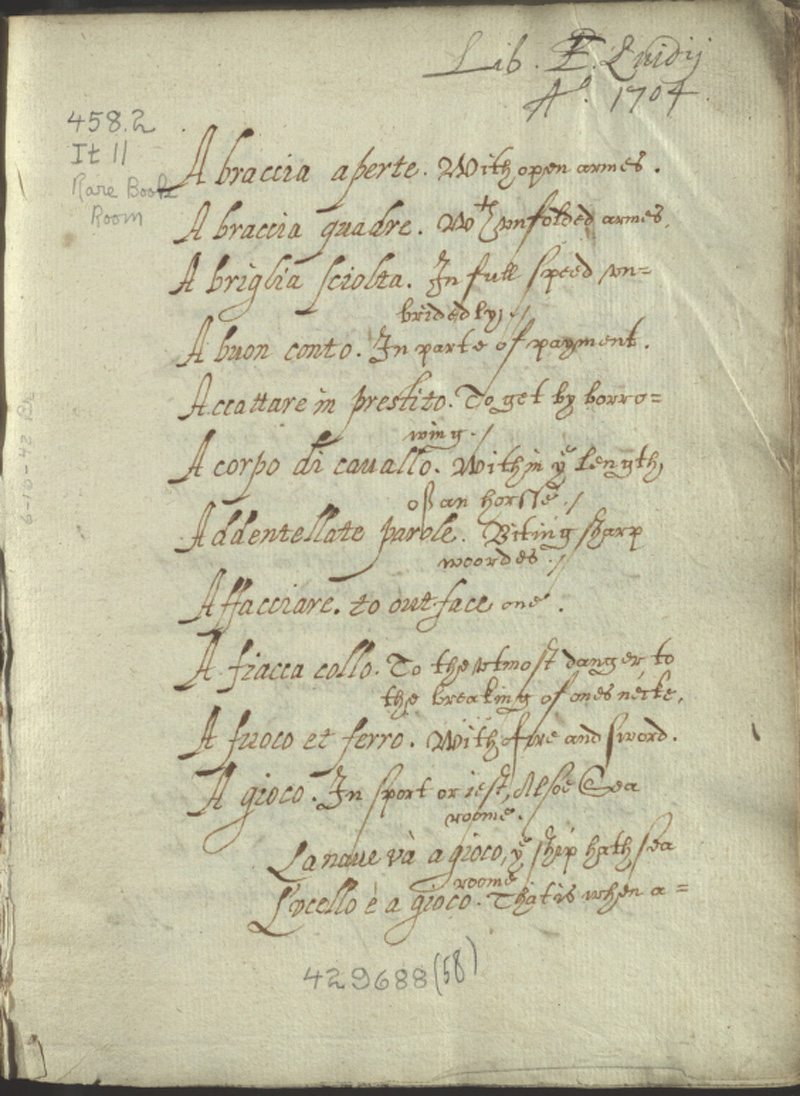 Lib. E. Luidij
Aº. 1704
458.2
It 11
Rare Book
Room
A braccia aperte. With open armes.
A braccia quadre. Wth vnfolded armes.
A briglia sciolta. In full speed vn=
bridedly./
A buon conto. In parte of payment.
Accattare in prestito. To get by borro=
wing./
A corpo di cauallo. Within ye length
of an horsse./
Addentellate parole. Biting sharp
woordes./
Affacciare. to outface one.
A fiacca collo. To the vtmost danger, to
the breaking of ones necke.
A fuoco et ferro. With fire and sword.
A gioco. In sport or iest, Alsoe Sea
roome.
La naue và a gioco, ye ship hath sea
roome
L'vcello è a gioco. That is when a=
429688(58)
6-10-42